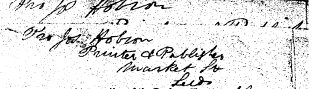 Jos Hobson
Jos Hobson
Printer & Publisher
Market St
Leeds